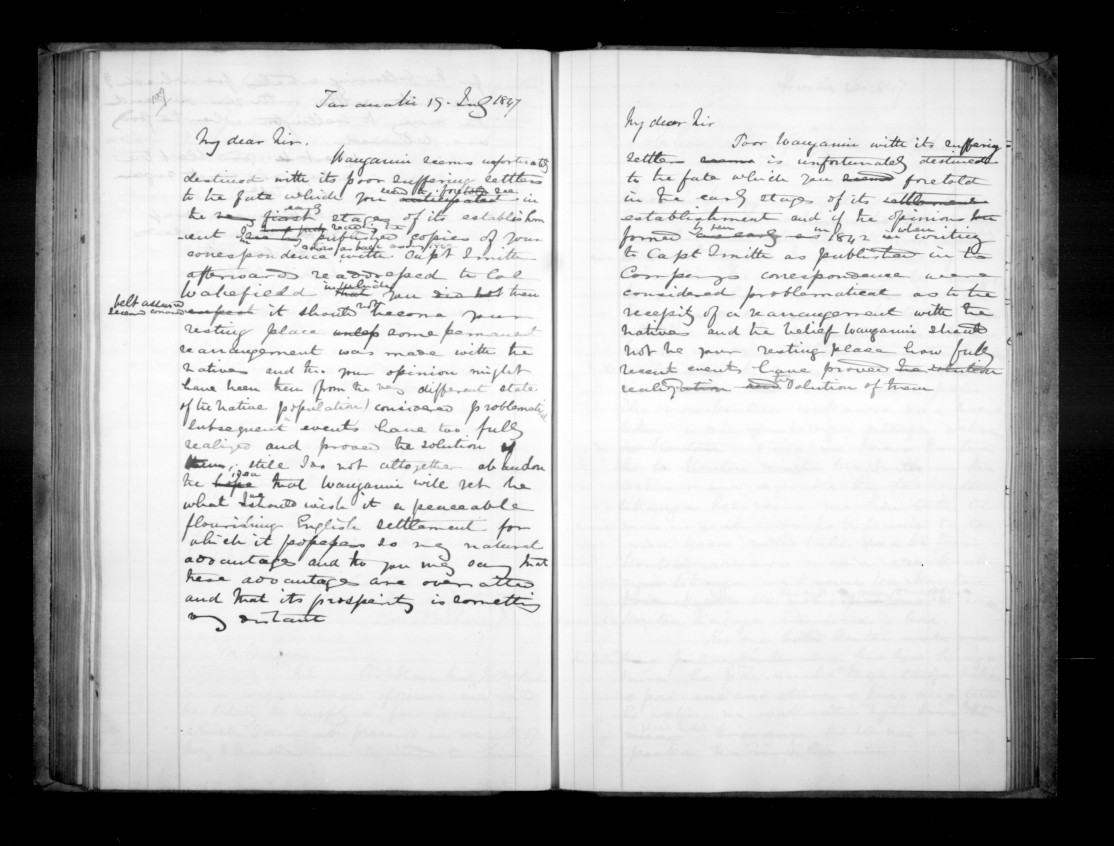 Taranaki 19. July 1847
My dear Sir.
Wanganui seems unfortunately
destined with its poor suffering settlers
to the fate which you anticipated in
used to foretold
the very first stages of its establishm
early
ent published copies of your
correspondence with Capt Smith
as far back as
afterwards readdressed to Col
Wakefield that you did not then
felt assured
expect it should become your
not
resting place unless some permanent
rearrangement was made with the
natives and tho your opinion might
have been then (from the very different state
of the native population) considered problematical
subsequent events have too fully
realized and proved the solution of
them, still I do not altogether abandon
idea
the hope that Wanganui will yet be
what I should wish it a peaceable
we
flourishing English settlement for
which it possesses so many natural
advantages and tho you may say that
these advantages are overrated
and that its prosperity is something
very distant
My dear Sir
Poor Wanganui with its suffering
settlers seems is unfortunately destined
to the fate which you seemed foretold
in the early stages of its settlement
establishment and if the opinions
formed as early as 1842 in writing
by you in when
to Capt Smith as published in the
Companys correspondence were
considered problematical as to the
necessity of a rearrangement with the
natives and the belief Wanganui should
not be your resting place how fully
recent events have proved the solution
realization and solution of them